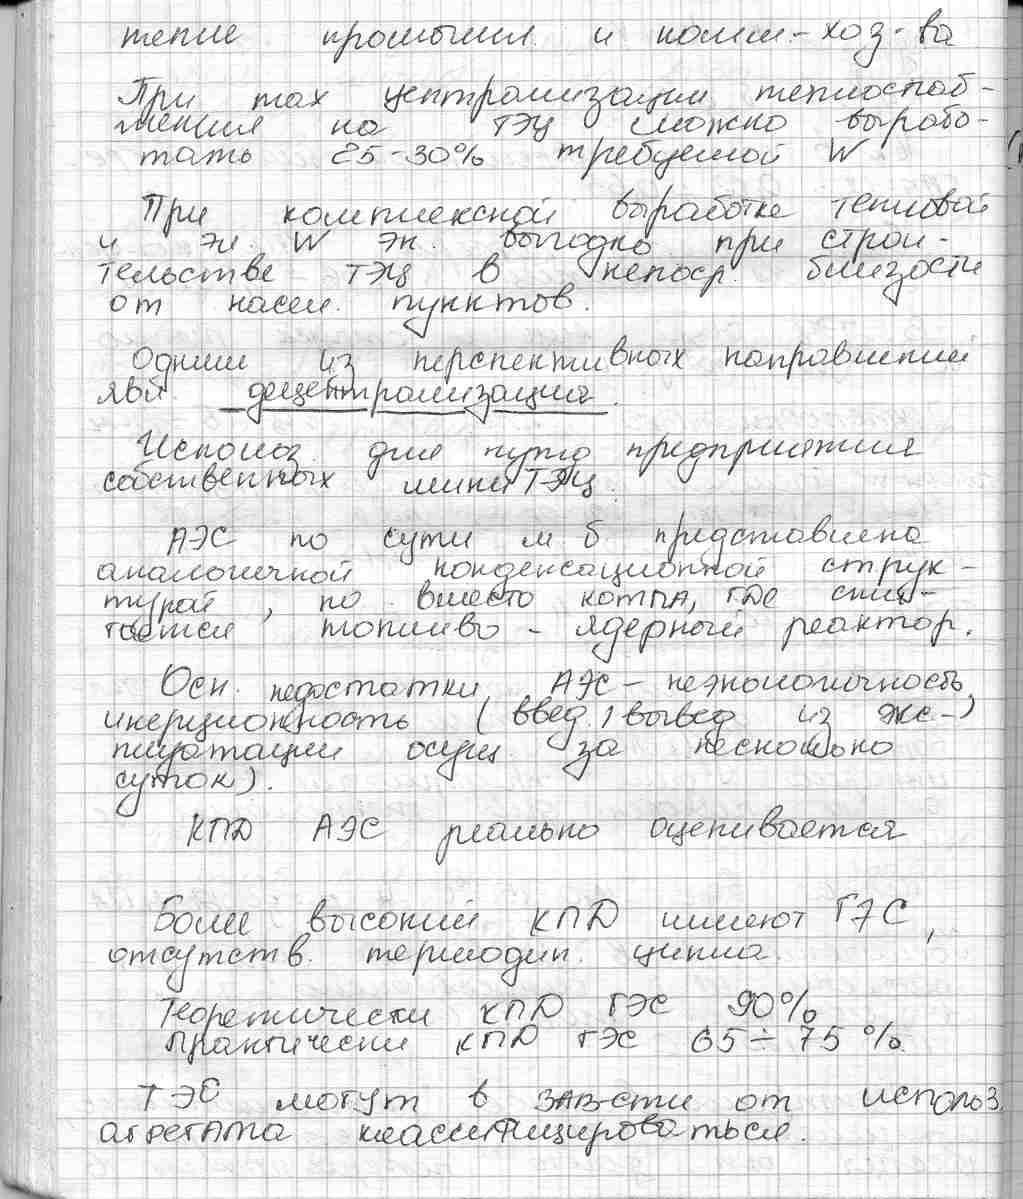 тепле промышл. и комм-хоз-ва
При max централизации теплоснаб-
жения на ТЭЦ можно вырабо-
тать 25-30% требуемой W
При комплексной выработке тепловой
и эл. W эк. выгодно при строи-
тельстве ТЭЦ в непоср. близости
от насел. пунктов.
Одним из перспективных направлений
явл. децентрализация.
Использ. для нужд предприятия
собственных мини ТЭЦ.
АЭС по сути м.б представлена
аналогичной конденсационной струк-
турой, но вместо котла, где сжиг-
ается топливо - ядерный реактор.
Осн. недостатки АЭС - неэкологичность,
инерционность (введ, вывед из экс-)
плуатации осущ за несколько
суток).
КПД АЭС реально оценивается
Более высокий КПД имеют ГЭС,
отсутств. термодин. цикла.
Теоретически КПД ГЭС 90%
Практически КПД ГЭС 65÷75%.
ТЭС могут в зав-сти от использ.
агрегата классифицироваться.